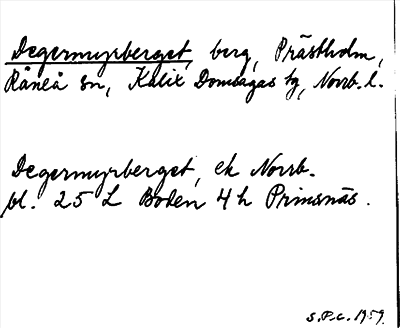 Degermyrberget, berg, Prästholm,
Råneå sn, Kalix Domsagas tg, Norrb. l.
Degermyrberget, ek Norrb.
bl. 25 L Boden 4 h Prinsnäs.
S.P.C. 1959.